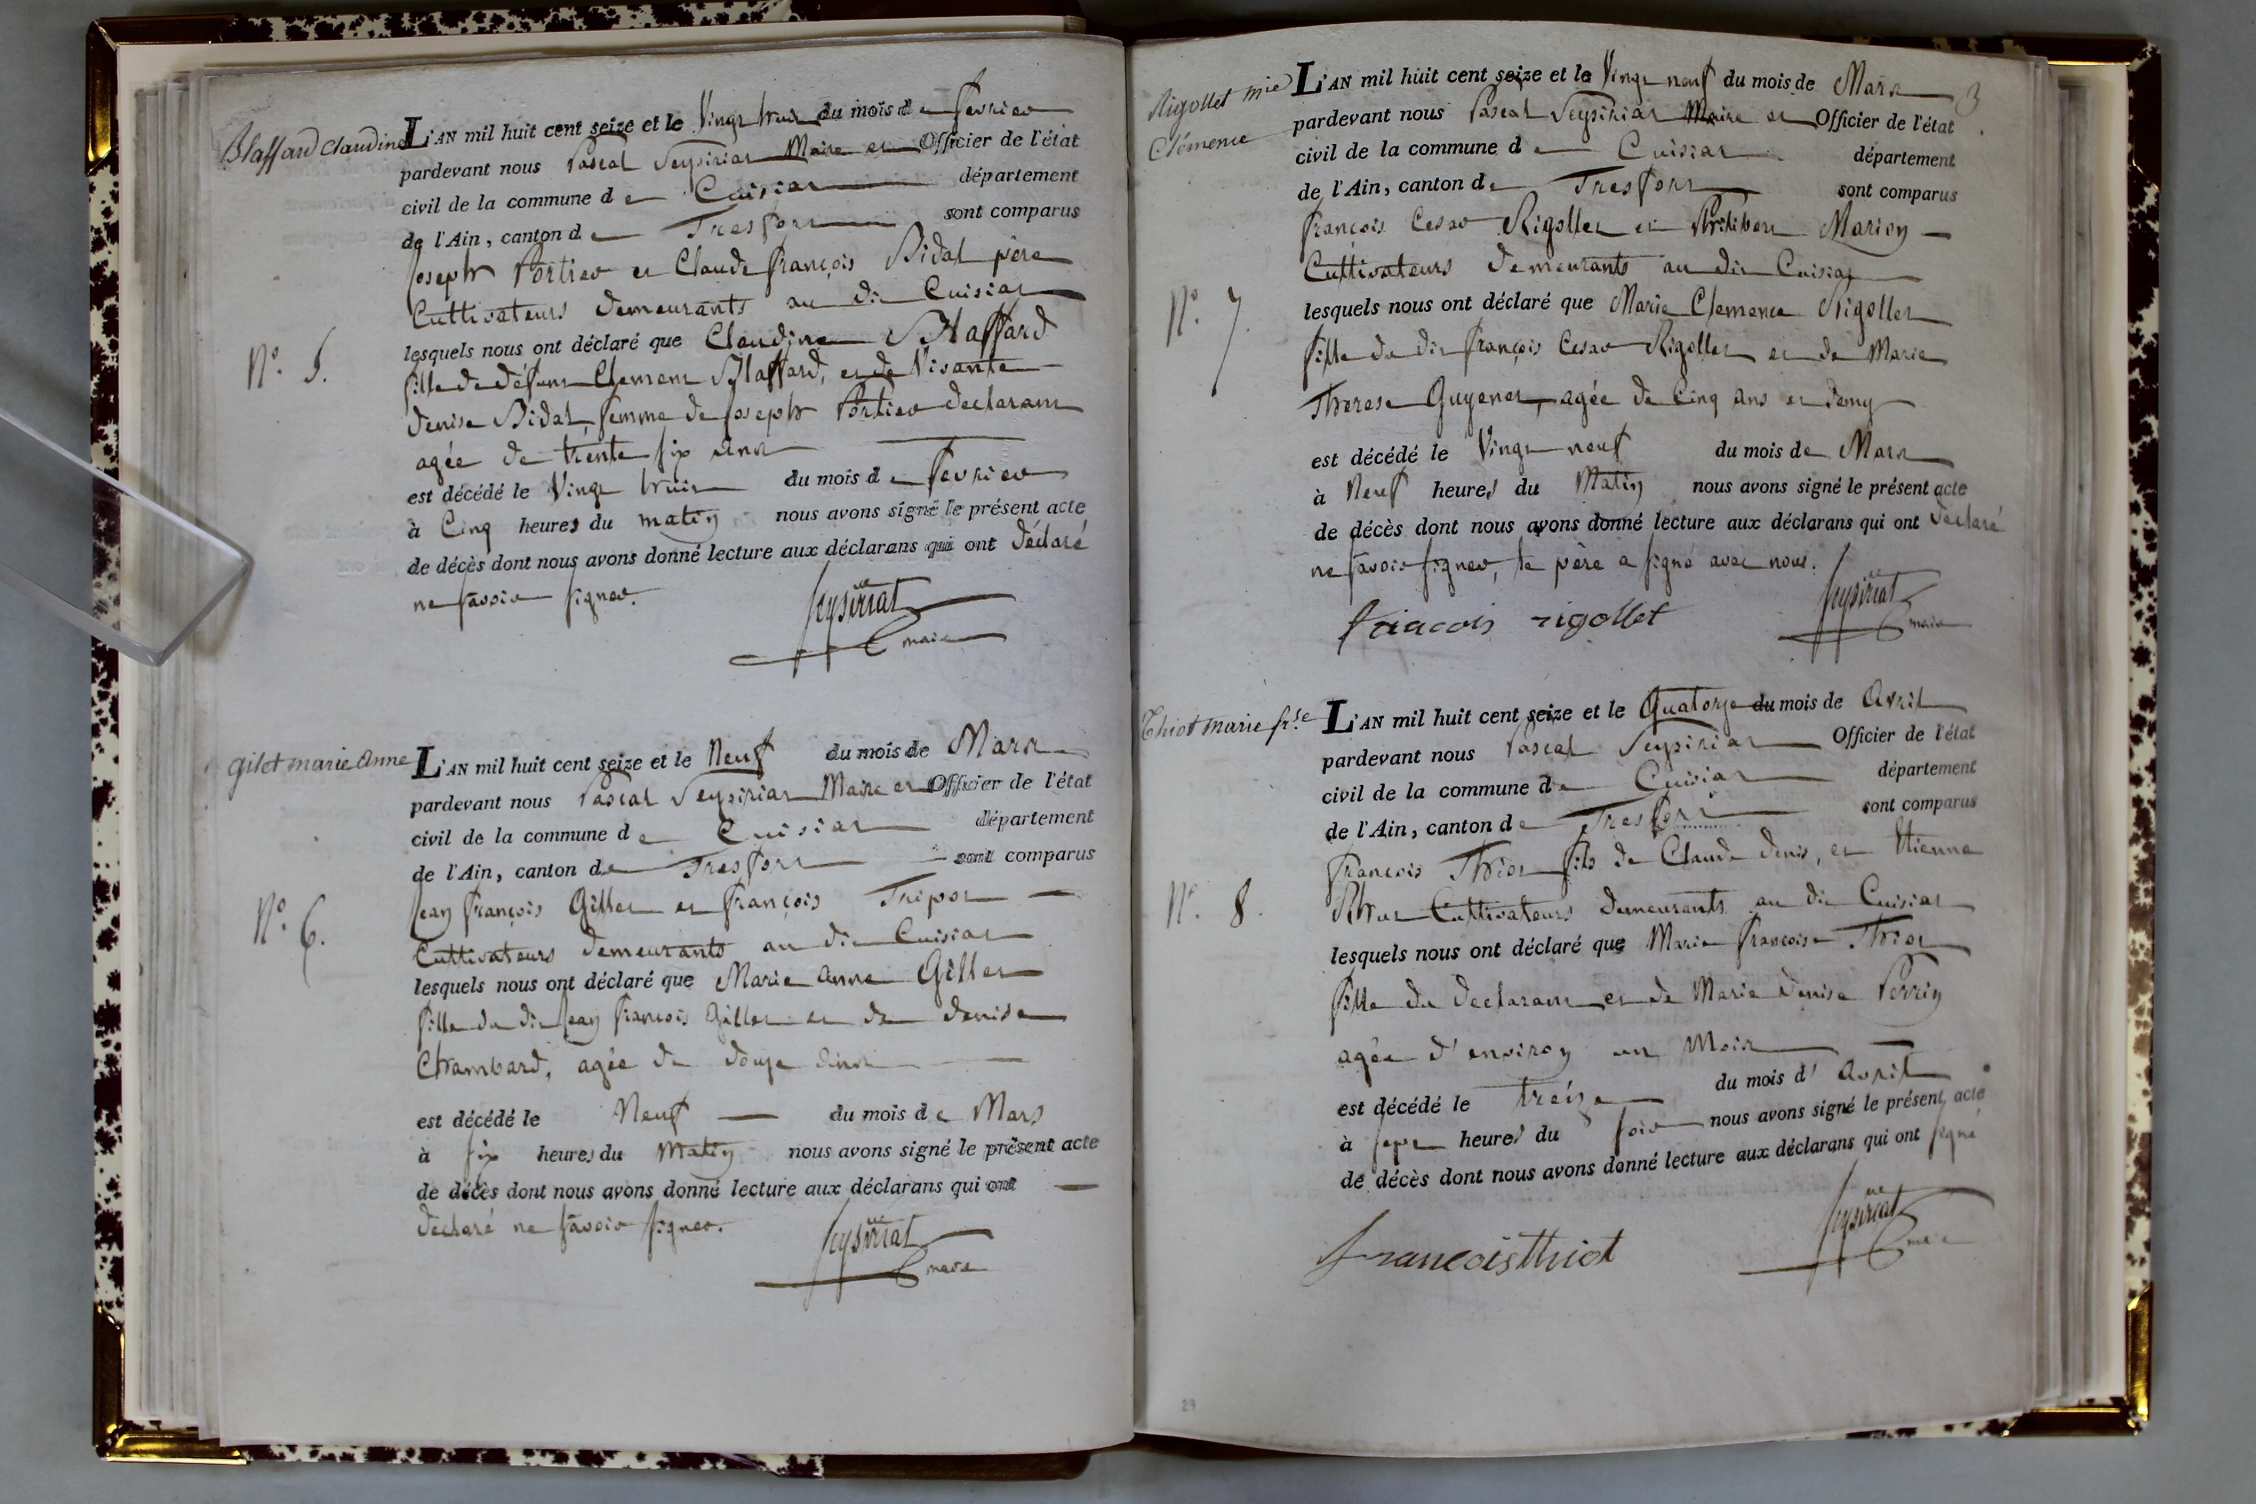 Blaffard Claudine
L'AN mil huit cent seize et le Vingt huit du mois de fevrier
pardevant nous Pascal Seysiriat Maire et Officier de l'état
civil de la commune de Cuisiat département
de l'Ain, canton de Tresfort sont comparus
Joseph Portier et Claude françois Bidal père
Cultivateurs demeurants au dit Cuisiat
N.º 5.
lesquels nous ont déclaré que Claudine Blaffard
fille de défunt Clement Blaffard, et de Vivante
denise Bidal, femme de Joseph Portier declarant
agée de trente six ans
est décédé le Vingt huit du mois de fevrier
à Cinq heures du matin nous avons signé le présent acte
de décès dont nous avons donné lecture aux déclarans qui ont déclaré
ne savoir signer.
Seysiriat
maire
gilet marie anne
L'AN mil huit cent seize et le Neuf du mois de Mars
pardevant nous Pascal Seysiriat Maire et Officier de l'état
civil de la commune de Cuisiat département
de l'Ain, canton de Tresfort sont comparus
N.º 6.
Jean françois Gillet et françois Tripot
Cultivateurs demeurants au dit Cuisiat
lesquels nous ont déclaré que Marie Anne Gillet
fille du dit Jean françois Gillet et de denise
Chambard, agée de douze ans
est décédé le Neuf du mois de Mars
à six heures du Matin nous avons signé le présent acte
de décès dont nous avons donné lecture aux déclarans qui ont
declaré ne savoir signer.
Seysiriat
maire
3
Rigollet mie
Clémence
L'AN mil huit cent seize et le Vingt neuf du mois de Mars
pardevant nous Pascal Seysiriat Maire et Officier de l'état
civil de la commune de Cuisiat département
de l'Ain, canton de Tresfort sont comparus
françois Cesar Rigollet et Philibert Marion
Cultivateurs demeurants au dit Cuisiat
N.º 7.
lesquels nous ont déclaré que Marie Clemence Rigollet
fille du dit françois Cesar Rigollet et de Marie
Therese Guyenet, agée de Cinq ans et demy
est décédé le Vingt neuf du mois de Mars
à Neuf heures du Matin nous avons signé le présent acte
de décès dont nous avons donné lecture aux déclarans qui ont declaré
ne savoir signer, le père a signé avec nous.
francois rigollet
Seysiriat
maire
Thiot marie fr.se
L'AN mil huit cent seize et le Quatorze du mois de Avril
pardevant nous Pascal Seysiriat Officier de l'état
civil de la commune de Cuisiat département
de l'Ain, canton de Tresfort sont comparus
françois Thiot fils de Claude denis, et Etienne
N.º 8.
Cultivateurs demeurants au dit Cuisiat
lesquels nous ont déclaré que Marie françoise Thiot
fille du declarant et de Marie denise Perrin
agée d'environ un Mois
est décédé le treize du mois d'avril
à sept heures du soir nous avons signé le présent acte
de décès dont nous avons donné lecture aux déclarans qui ont signé
francois thiot
Seysiriat
maire
29